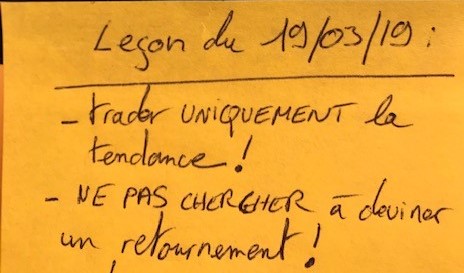 Leçon du 19/03/19 :
- trader UNIQUEMENT la
tendance !
- NE PAS CHERCHER à deviner
un retournement !